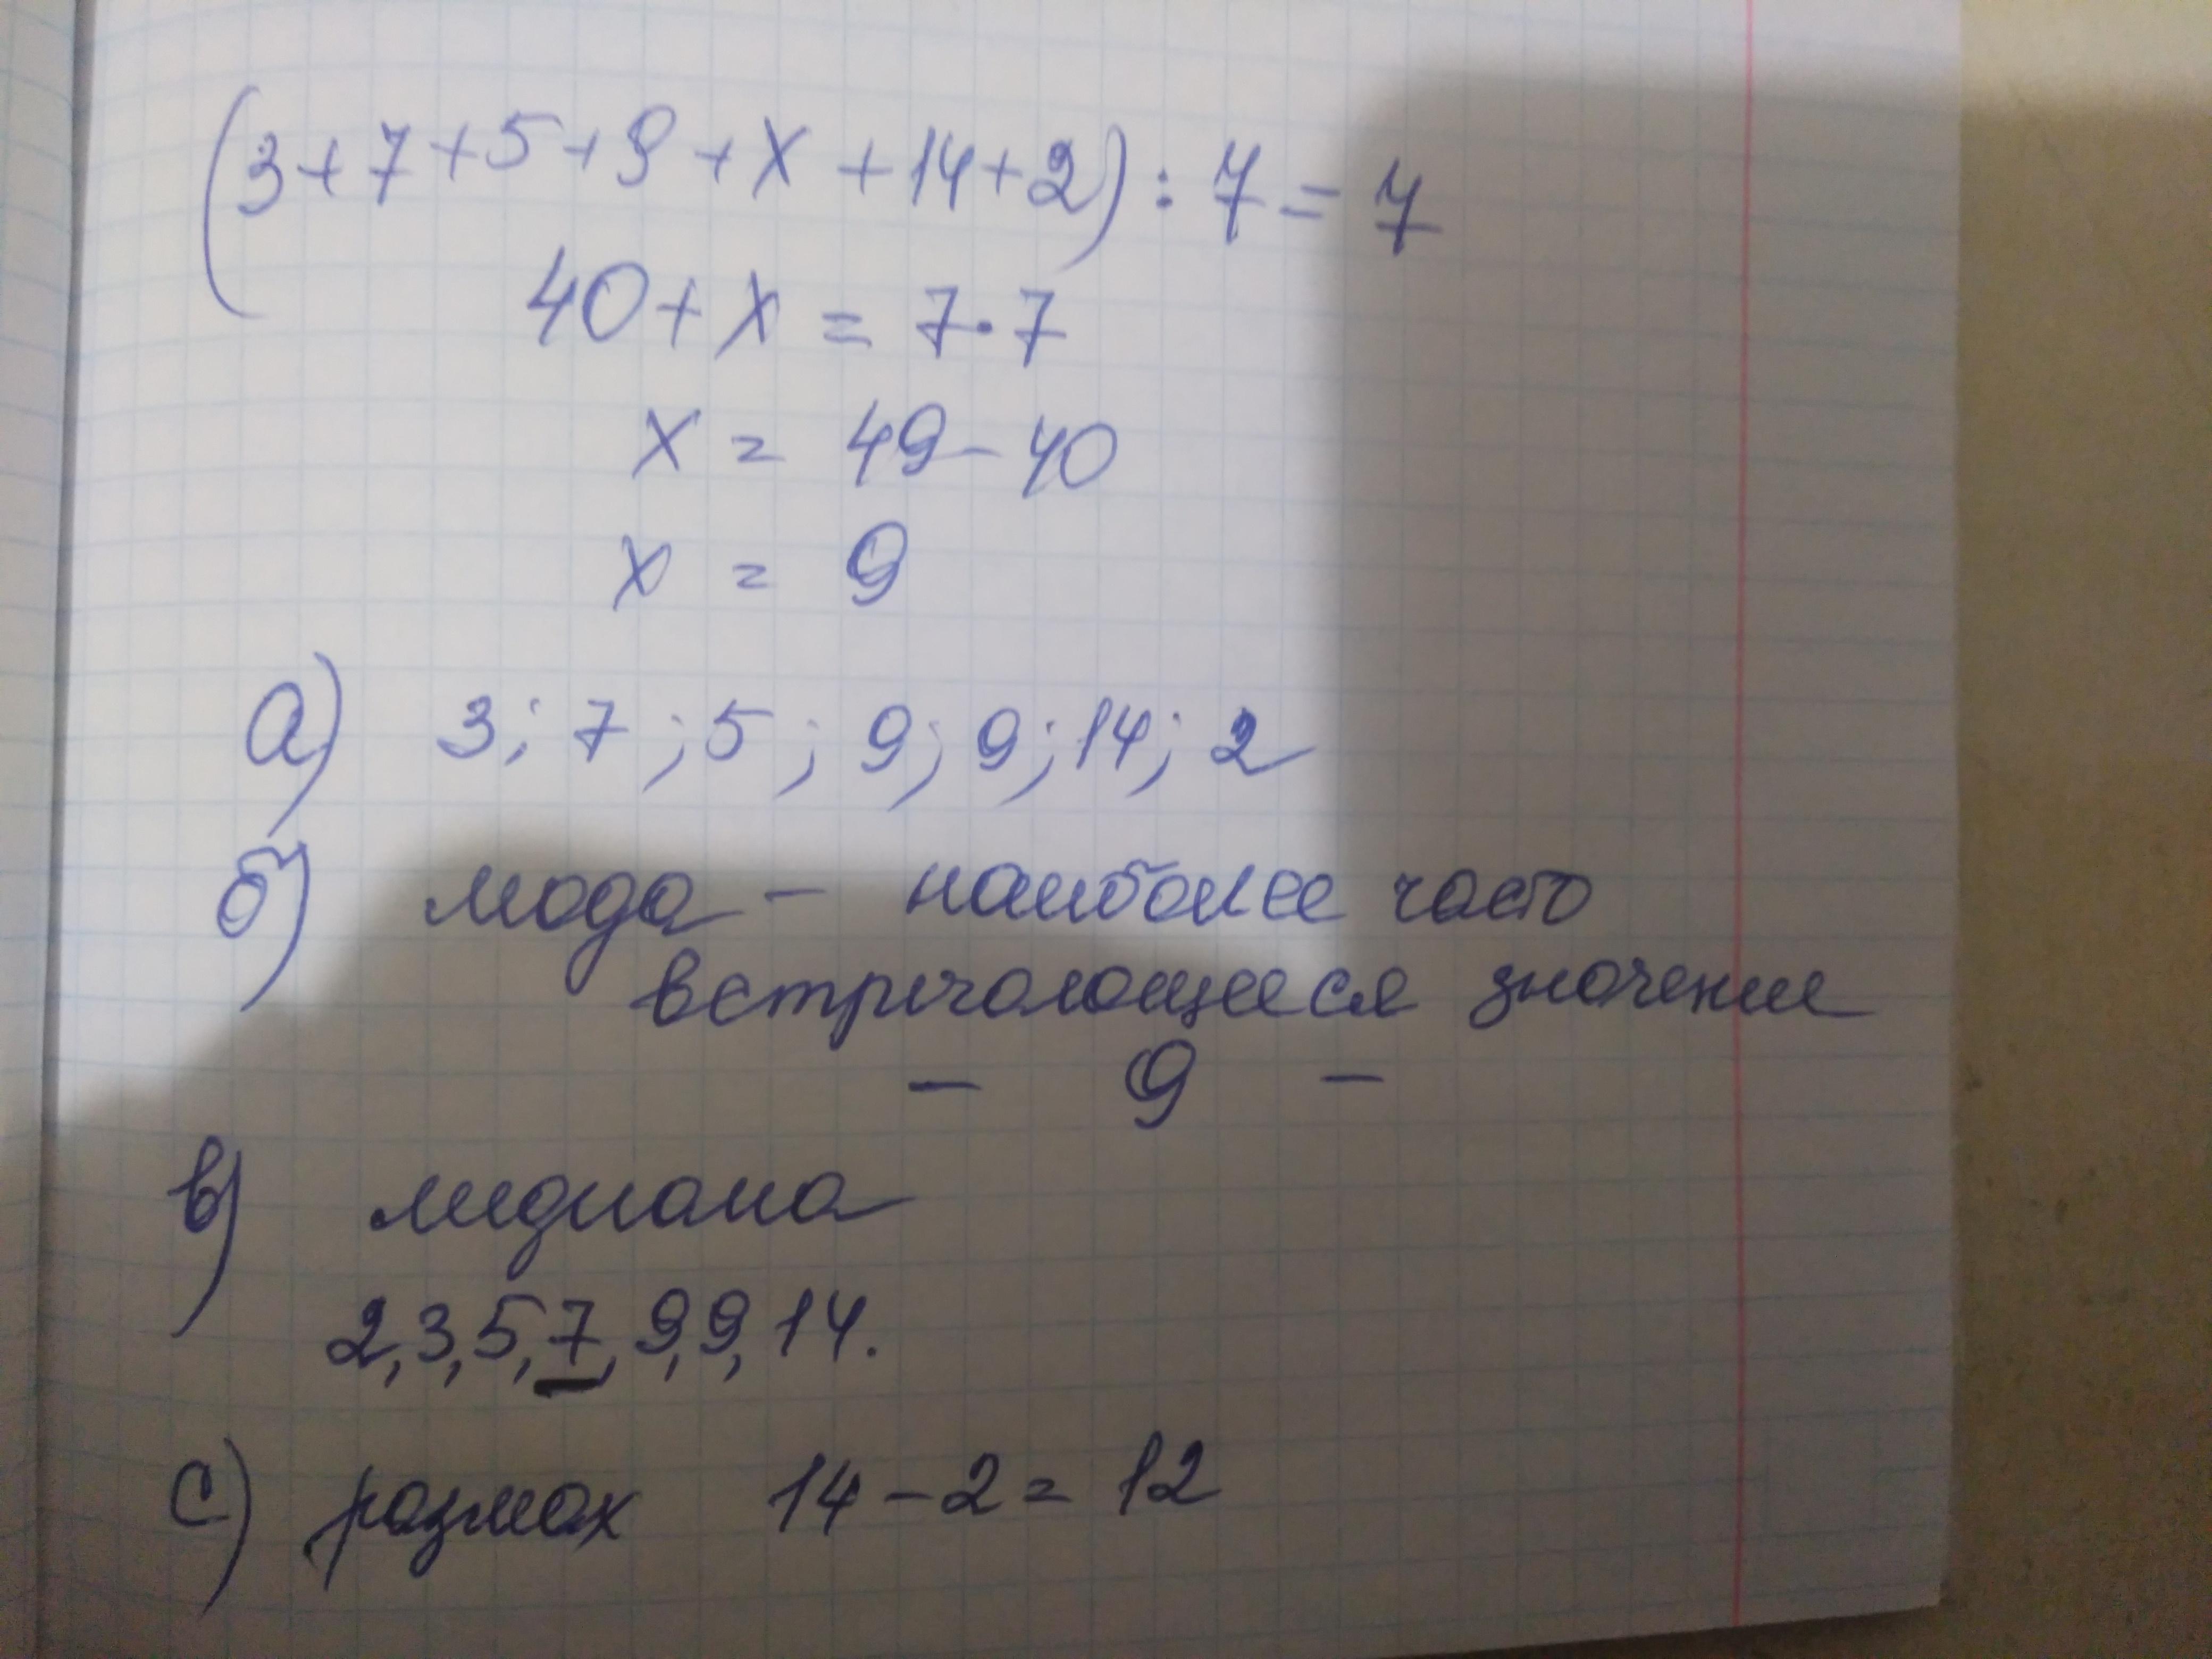 (3+7+5+9+x+14+2):7=7
40+x=7·7
x=49-40
x=9
а) 3; 7; 5; 9; 9; 14; 2
б) мода - наиболее часто
встречающееся значение
- 9 -
в) медиана
2,3,5,7,9,9,14.
с) размах 14-2=12